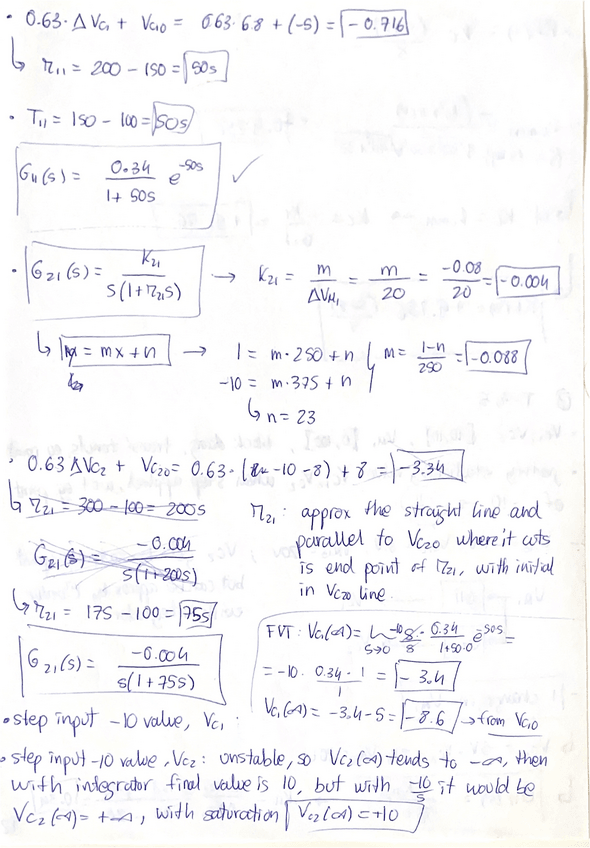 • 0.63·ΔVc1 + Vc10 = 0.63·6.8 + (-5) = -0.716
↳ τ11 = 200 - 150 = 50s
• T11 = 150 - 100 = 50s
G11(s) = 0.34 / (1 + 50s) e^-50s ✓
• G21(s) = K21 / (s(1+τ21s)) → K21 = m / ΔVM1 = m / 20 = -0.08 / 20 = -0.004
↳ y = mx + n → 1 = m·250 + n
-10 = m·375 + n
m = (1-n) / 250 = -0.088
↳ n = 23
• 0.63 ΔVc2 + Vc20 = 0.63·(-10 -8) + 8 = -3.34
↳ τ21 = 300 - 100 = 200s
G21(s) = -0.004 / (s(1+200s))
↳ τ21 = 175 - 100 = 75s
G21(s) = -0.004 / (s(1+75s))
τ21: approx the straight line and
parallel to Vc20 where it cuts
is end point of τ21, with initial
in Vc20 line.
FVT: Vc1(∞) = lim s→0 -10/s · s · 0.34 / (1+50·0) e^-50s =
= -10 · 0.34·1 / 1 = -3.4
Vc1(∞) = -3.4 - 5 = -8.6 → from Vc10
• step input -10 value, Vc1:
• step input -10 value, Vc2: unstable, so Vc2(∞) tends to -∞, then
with integrator final value is 10, but with -10/s it would be
Vc2(∞) = +∞, with saturation Vc2(∞) = +10